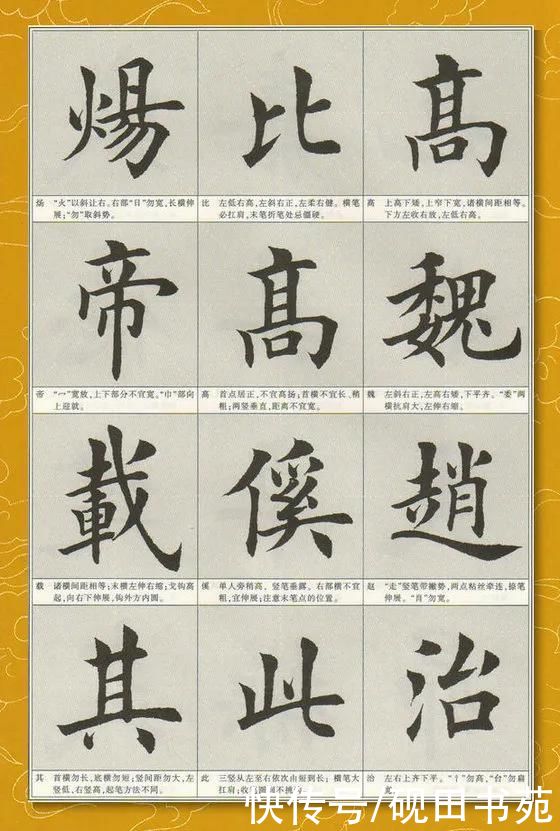 煬
比
髙
炀 “火”以斜让右。右部“日”勿宽,长横伸
展;“勿”取斜势。
比 左低右高,左斜右正,左柔右健。横笔
必扛肩,末笔折笔处忌僵硬。
高 上高下矮,上窄下宽,诸横间距相等。
下方左收右放,左低右高。
帝
髙
魏
帝 “冖”宽放,上下部分不宜宽。“巾”部向
上迎就。
高 首点居正,不宜高扬;首横不宜长、稍
粗;两竖垂直,距离不宜宽。
魏 左斜右正,左高右矮,下平齐。“委”两
横抗肩大,左伸右缩。
載
傒
趙
载 诸横间距相等;末横左伸右缩;戈钩高
起,向右下伸展,钩外方内圆。
傒 单人旁稍高、竖笔垂露。右部横不宜
粗,宜伸展;注意末笔点的位置。
赵 “走”竖笔带撇势,两点粘丝牵连,捺笔
伸展。“肖”勿宽。
其
此
治
其 首横勿长,底横勿短;竖间距勿大,左
竖低,右竖高,起笔方法不同。
此 三竖从左至右依次由短到长;横笔大
扛肩;收
治 左右上齐下平。“氵”勿高,“台”勿扁
宽。
快传号/砚田书苑